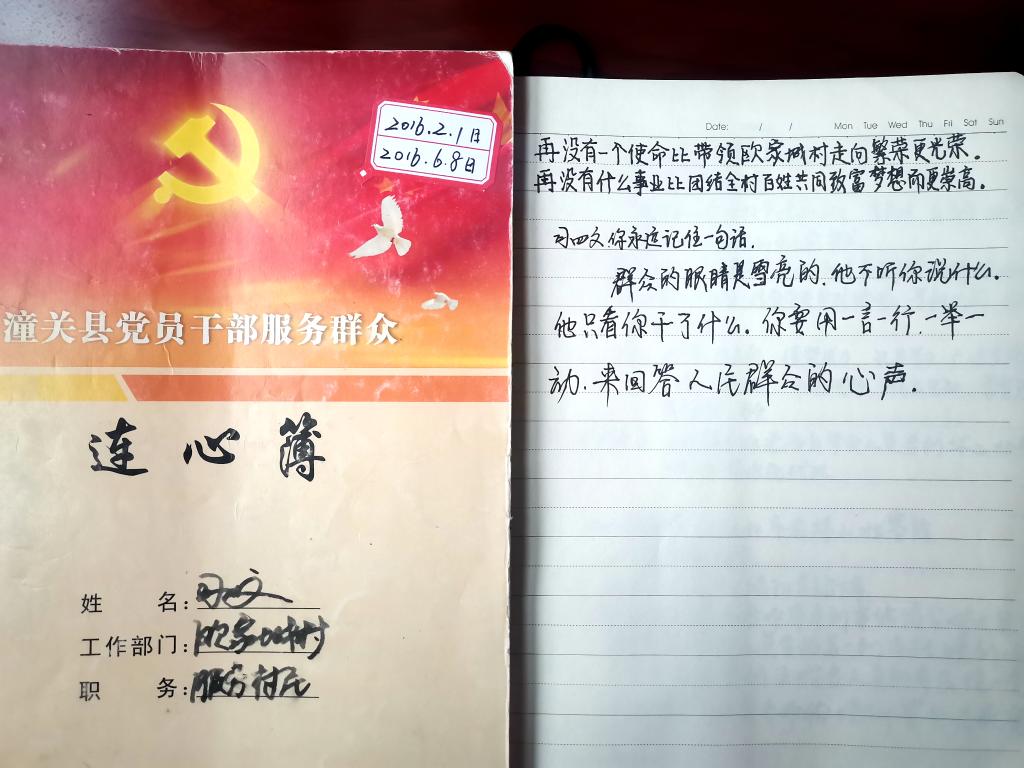 2016.2.1日
2016.6.8日
潼关县党员干部服务群众
连心簿
姓 名：习四文
工作部门：欧家城村
职 务：服务村民
Date: / / Mon Tue Wed Thu Fri Sat Sun
再没有一个使命比带领欧家城村走向繁荣更光荣。
再没有什么事业比团结全村百姓共同致富梦想而更崇高。
习四文你永远记住一句话.
群众的眼睛是雪亮的.他不听你说什么.
他只看你干了什么.你要用一言一行.一举一
动.来回答人民群众的心声.